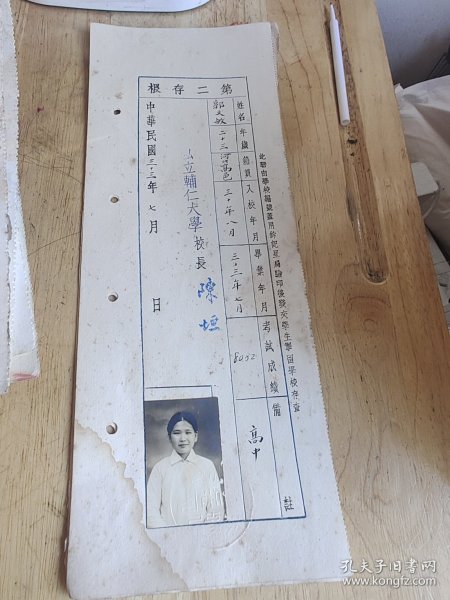 此聯由學校編號蓋用鈐記呈局驗印後發交學生畢留學校存查
姓名 年歲 籍貫 入校年月 畢業年月 考試成績 備註
郭文敏 二十三 河北高邑 三十年八月 三十三年七月 80.52 高中
第二存根
私立輔仁大學校長 陳垣
中華民國三十三年七月 日
孔夫子旧书网
www.kongfz.com